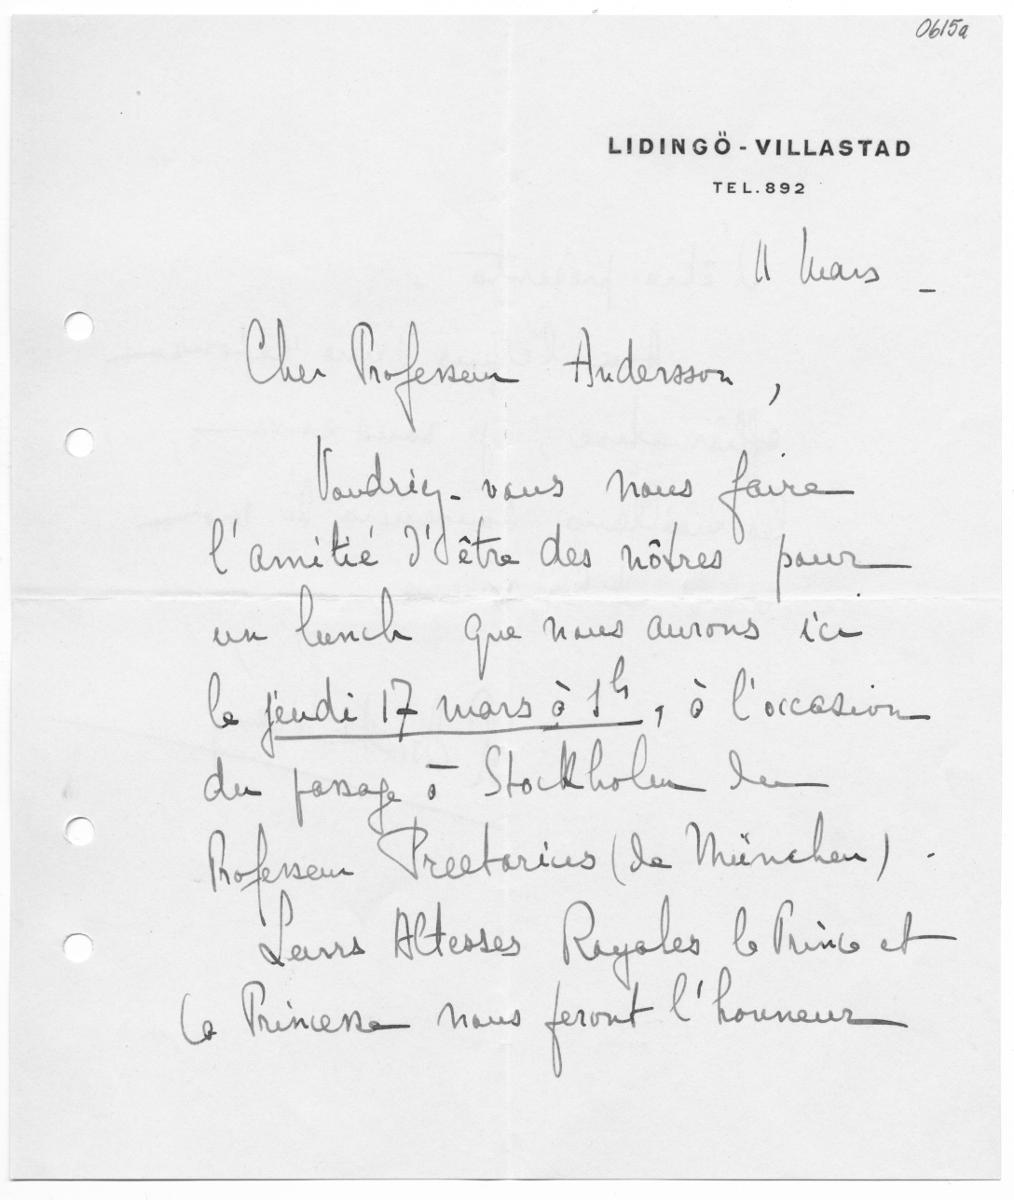 0615a
LIDINGÖ - VILLASTAD
TEL. 892
11 Mars –
Cher Professeur Andersson,
Voudriez-vous nous faire
l'amitié d'être des nôtres pour
un lunch que nous aurons ici
le jeudi 17 mars à 1h, à l'occasion
du passage à Stockholm du
Professeur Preetorius (de München).
Leurs Altesses Royales le Prince et
la Princesse nous feront l'honneur